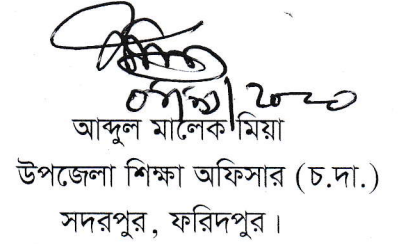 আব্দুল মালেক মিয়া
উপজেলা শিক্ষা অফিসার (চ.দা.)
সদরপুর, ফরিদপুর।